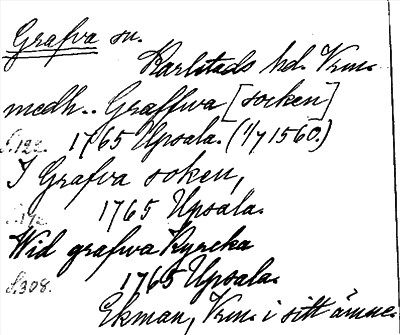 Grafva sn.
Karlstads hd. Vrm.
medh.. Graffwa [socken]
S.122. 1765 Upsala. (1/7 1560.)
I Grafva soken,
1765 Upsala.
Wid grafwa Kyrcka
S.308. 1765 Upsala.
Ekman, Vrm. i sitt ämne